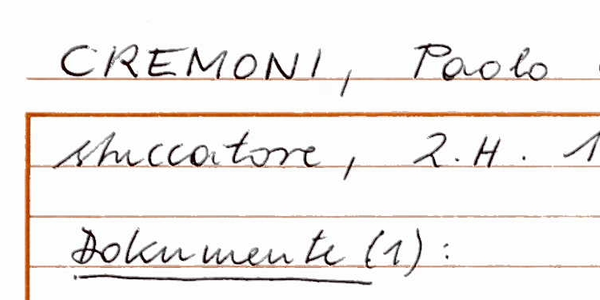 CREMONI, Paolo
stuccatore, 2.H. 1
Dokumente (1):